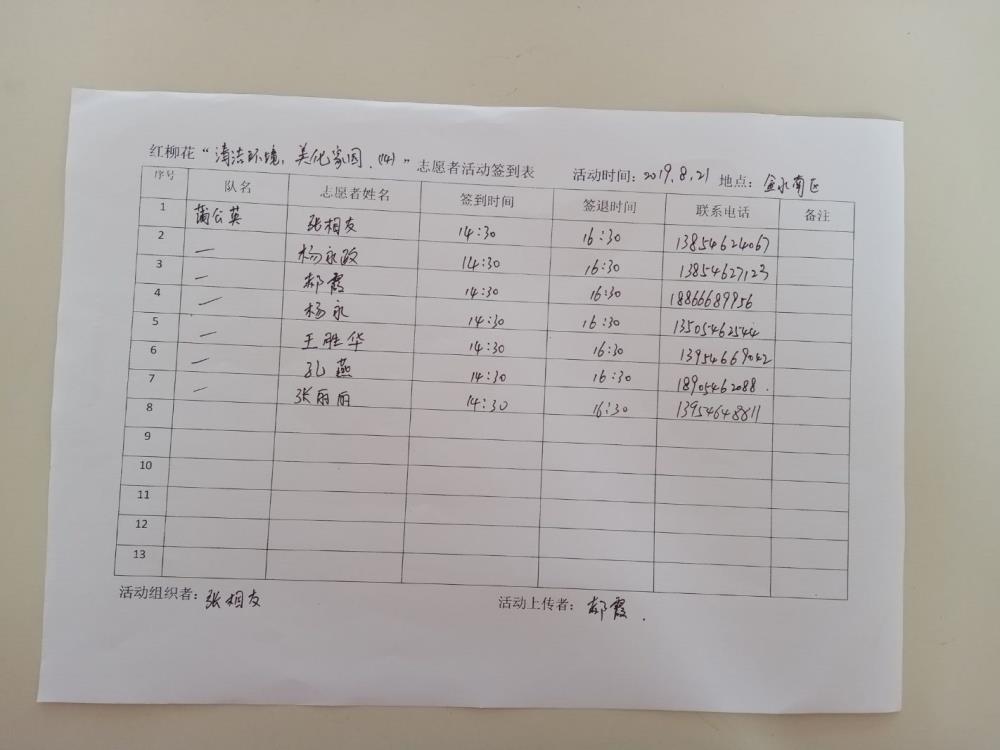 红柳花“清洁环境,美化家园.(4)”志愿者活动签到表 活动时间:2019.8.21 地点:金水南区
序号 队名 志愿者姓名 签到时间 签退时间 联系电话 备注
1 蒲公英 张相友 14:30 16:30 13854624067
2 — 杨永政 14:30 16:30 13854627123
3 — 郝霞 14:30 16:30 18866689956
4 — 杨永 14:30 16:30 13505462544
5 — 王胜华 14:30 16:30 13954669042
6 — 孔燕 14:30 16:30 18905462088.
7 — 张丽丽 14:30 16:30 13954648811
8
9
10
11
12
13
活动组织者:张相友 活动上传者:郝霞.